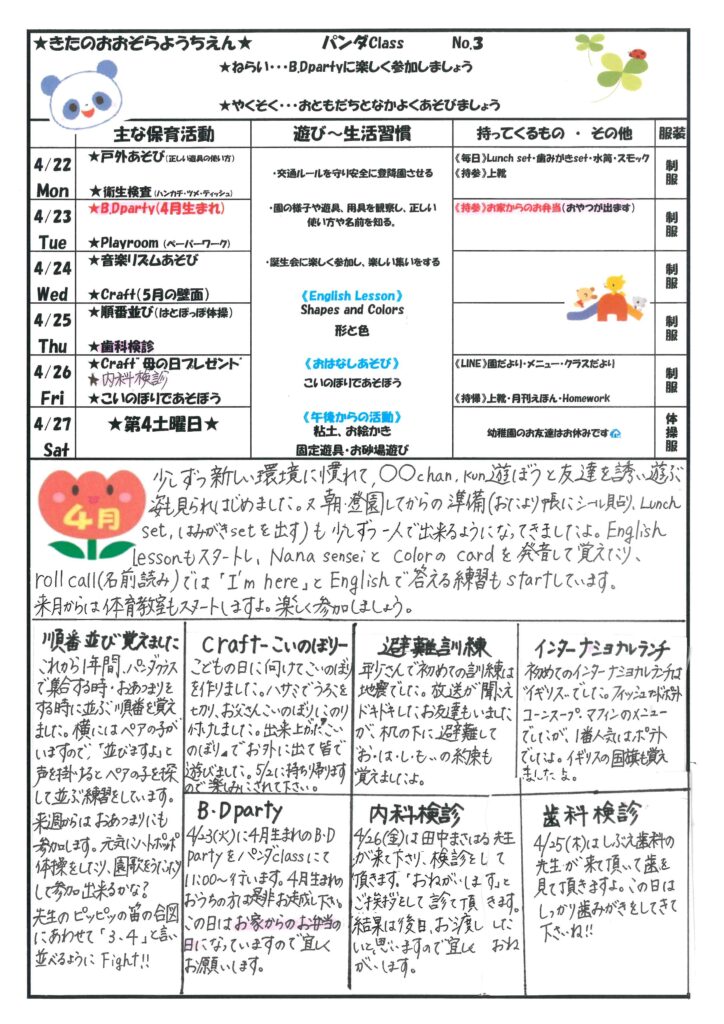 ★きたのおおぞらようちえん★ パンダClass No.3
★ねらい・・・B,Dpartyに楽しく参加しましょう
★やくそく・・・おともだちとなかよくあそびましょう
主な保育活動 遊び～生活習慣 持ってくるもの ・ その他 服装
4/22 Mon
★戸外あそび(正しい遊具の使い方)
★衛生検査(ハンカチ・ツメ・ティッシュ)
・交通ルールを守り安全に登降園させる
《毎日》Lunch set・歯みがきset・水筒・スモック
《持参》上靴
制服
4/23 Tue
★B,Dparty(4月生まれ)
★Playroom (ペーパーワーク)
・園の様子や遊具、用具を観察し、正しい
使い方や名前を知る。
《持参》お家からのお弁当(おやつが出ます)
制服
4/24 Wed
★音楽リズムあそび
★Craft(5月の壁面)
・誕生会に楽しく参加し、楽しい集いをする
《English Lesson》
Shapes and Colors
制服
4/25 Thu
★順番並び(はとぽっぽ体操)
★歯科検診
形と色
制服
4/26 Fri
★Craft゛母の日プレゼント゛
★内科検診
★こいのぼりであそぼう
《おはなしあそび》
こいのぼりであそぼう
《LINE》園だより・メニュー・クラスだより
《持帰》上靴・月刊えほん・Homework
制服
4/27 Sat
★第4土曜日★
《午後からの活動》
粘土、お絵かき
固定遊具・お砂場遊び
幼稚園のお友達はお休みです
体操服
4月
少しずつ新しい環境に慣れて,〇〇chan,kun遊ぼうと友達を誘い遊ぶ
姿見られはじめました。又朝・登園してからの準備(おたより帳にシール貼り,Lunch
set,はみがきsetを出す)も少しずつ一人で出来るようになってきましたよ。English
lessonもスタートし、Nana senseiと colorの cardを発音して覚えたり、
roll call(名前読み)では「I'm here」とEnglishで答える練習もstartしています。
来月からは体育教室もスタートしますよ。楽しく参加しましょう。
順番並び覚えました
これから1年間,パンダクラス
で集合する時・おあつまりを
する時に並ぶ順番を覚え
ました。横にはペアの子が
いますので、"並びますよ"と
声を掛けるとペアの子を探
して並ぶ練習をしています。
来週からはおあつまりにも
参加します。元気にハトポッポ
体操をしたり、園歌をうたったり
して参加出来るかな?
先生のピッピッの笛の合図
にあわせて「3、4」と言い
並べるように Fight!!
Craft-こいのぼり-
こどもの日に向けてこいのぼり
を作りました。ハサミでうろこを
切り、お父さんこいのぼりにのり
付けしました。出来上がった"こい
のぼり"でお外に出て皆で
遊びました。5/2に持ち帰ります
ので楽しみにされて下さい。
避難訓練
平川さんで初めての訓練は
地震でした。放送が聞こえ
ドキドキしたお友達もいました
が、机の下に避難して
お・は・し・も・の約束も
覚えましたよ。
インターナショナルランチ
初めてのインターナショナルランチは
"イギリス"でした。フィッシュカツ・ポテト
コーンスープ・マフィンのメニュー
でしたが、1番人気はポテト
でしたよ。イギリスの国旗も覚え
ましたよ。
B・D party
4/23(火)に4月生まれのB・D
partyをパンダclassにて
11:00～行います。4月生まれの
おうちの方は是非お越し下さい。
この日はお家からのお弁当の
日になっていますので宜しく
お願いします。
内科検診
4/26(金)は田中まさはる先生
が来て下さり、検診をして
頂きます。「おねがいします」と
ご挨拶をして診て頂きます。
結果は後日、お渡ししたい
と思いますので宜しくおね
がいします。
歯科検診
4/25(木)はしぶえ歯科の
先生が来て頂いて歯を
見て頂きますよ。この日は
しっかり歯みがきをしてきて
下さいね!!